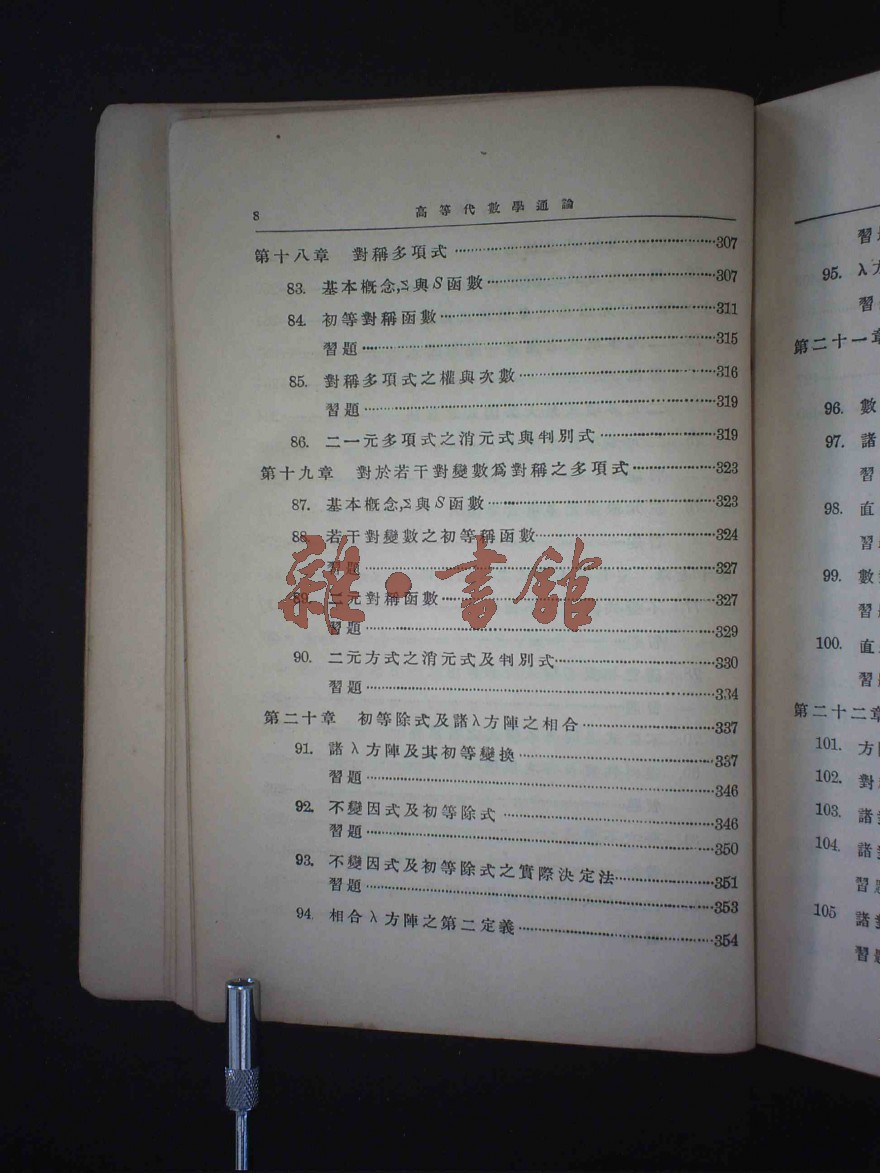 8 高等代數學通論
第十八章 對稱多項式 307
83. 基本概念,Σ與S函數 307
84. 初等對稱函數 311
習題 315
85. 對稱多項式之權與次數 316
習題 319
86. 二一元多項式之消元式與判別式 319
第十九章 對於若干對變數爲對稱之多項式 323
87. 基本概念,Σ與S函數 323
88. 若干對變數之初等稱函數 324
習題 327
89. 二元對稱函數 327
習題 329
90. 二元方式之消元式及判別式 330
習題 334
第二十章 初等除式及諸λ方陣之相合 337
91. 諸λ方陣及其初等變換 337
習題 346
92. 不變因式及初等除式 346
習題 350
93. 不變因式及初等除式之實際決定法 351
習題 353
94. 相合λ方陣之第二定義 354
雜·書館
習
95. λ
習
第二十一章
96. 數
97. 諸
習
98. 直
習
99. 數
習
100. 直
習
第二十二章
101. 方
102. 對
103. 諸
104. 諸
習
105 諸
習